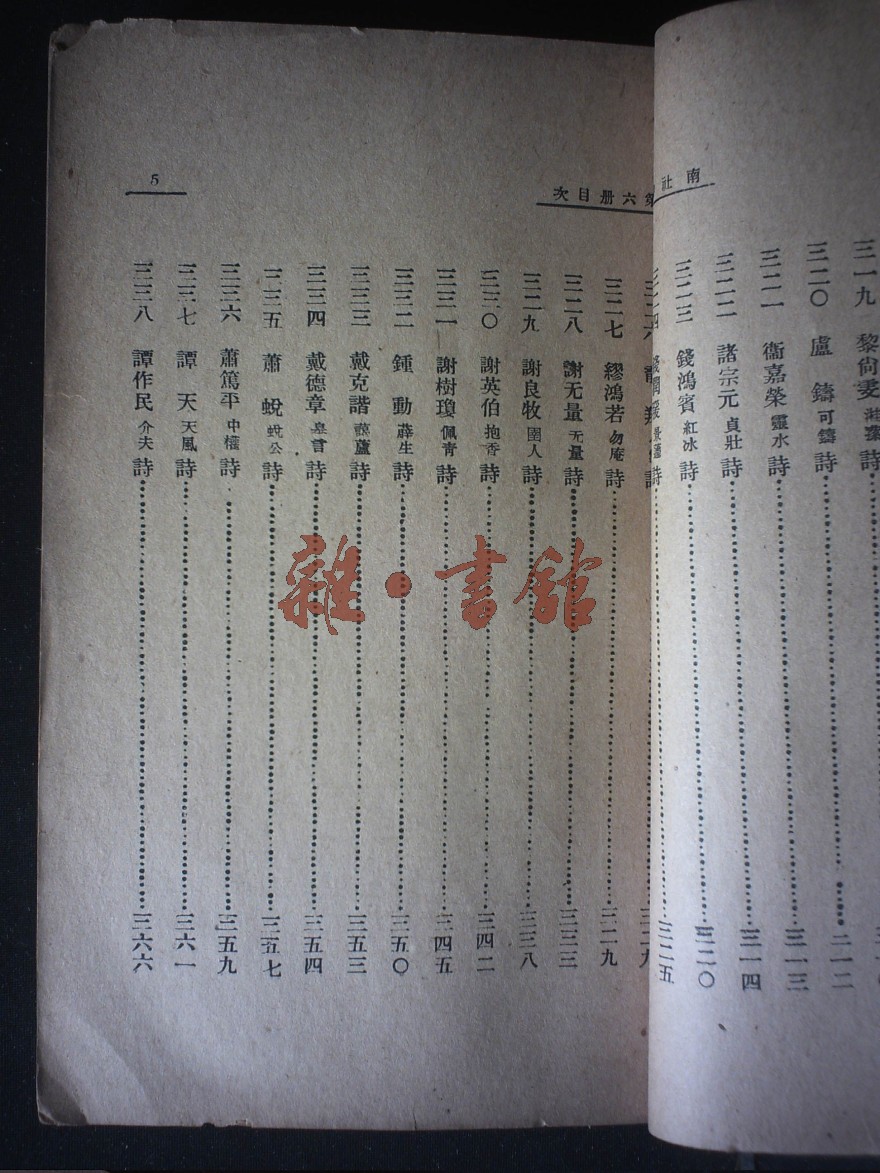 南社
三一九 黎尚雯 詩
三二〇 盧鑄 可鑄 詩……三一二
三二一 衞嘉榮 靈水 詩……三一三
三二二 諸宗元 貞壯 詩……三一四
三二三 錢鴻賓 紅冰 詩……三二〇
詩……三二五
六册目次
5
三二七 繆鴻若 勿庵 詩……三二九
三二八 謝无量 无量 詩……三三三
三二九 謝良牧 詩……三三八
三三〇 謝英伯 抱香 詩……三四二
三三一 謝樹瓊 佩青 詩……三四五
三三二 鍾動 薜生 詩……三五〇
三三三 戴克諧 詩……三五三
三三四 戴德章 詩……三五四
三三五 蕭蛻 蛻公 詩……三五七
三三六 蕭篤平 中權 詩……三五九
三三七 譚天 天風 詩……三六一
三三八 譚作民 介夫 詩……三六六
雜·書館